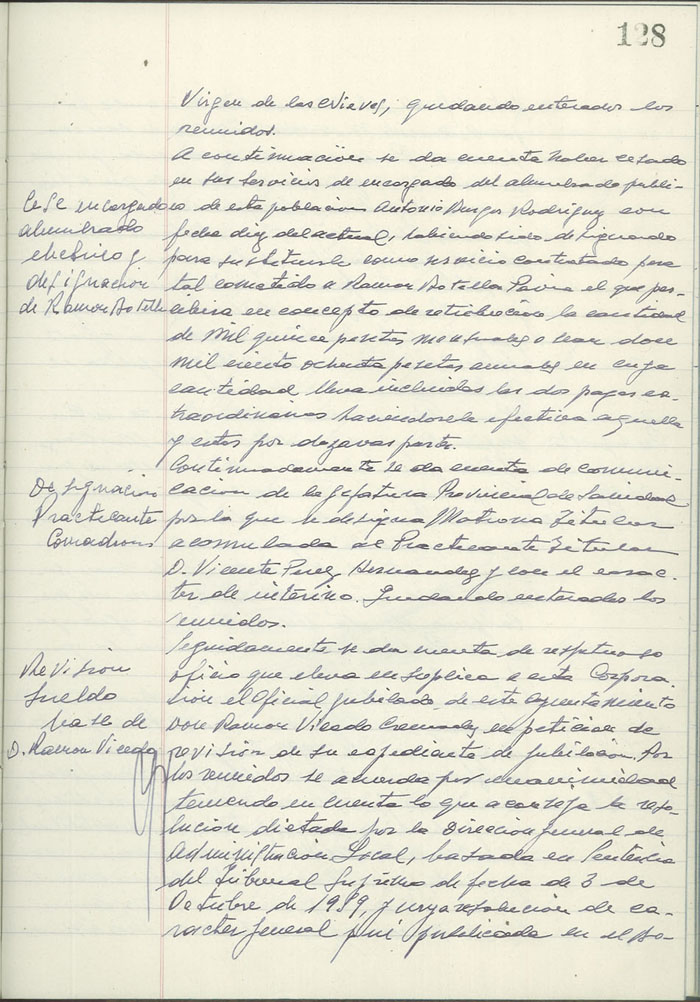 128
Virgen de las Nieves, quedando enterados los
reunidos.
A continuación se da cuenta haber cesado
en sus servicios de encargado del alumbrado publi-
co de esta población Antonio Burgos Rodriguez con
fecha diez del actual, habiendo sido designado
para sustituirle como servicio contratado para
tal cometido a Ramon Botella Pavia el que per-
cibira en concepto de retribución la cantidad
de mil quince pesetas mensuales o sean doce
mil ciento ochenta pesetas anuales en cuya
cantidad lleva incluidas las dos pagas ex-
traordinarias haciendosele efectiva aquella
y estas por dozavas partes.
Continuadamente se da cuenta de comuni-
cacion de la Jefatura Provincial de Sanidad
por la que se designa Matrona Titular
acomulada al Practicante Titular
D. Vicente Perez Hernandez y con el carac-
ter de interino. Quedando enterados los
reunidos.
Seguidamente se da cuenta de respetuoso
oficio que eleva en suplica a esta Corpora-
cion el Oficial jubilado de este Ayuntamiento
Don Ramon Vicedo en peticion de
revision de su expediente de jubilación. Por
los reunidos se acuerda por unanimidad
teniendo en cuenta lo que aconseja la reso-
lucion dictada por la Direccion general de
Administración Local, basada en Sentencia
del Tribunal Supremo de fecha de 3 de
Octubre de 1959, y cuya resolucion de ca-
racter general fue publicada en el Bo-
Cese encargado
alumbrado
electrico y
designación
de Ramon Botella
Designación
Practicante
Comadrona
Revision
sueldo
base de
D. Ramon Vicedo